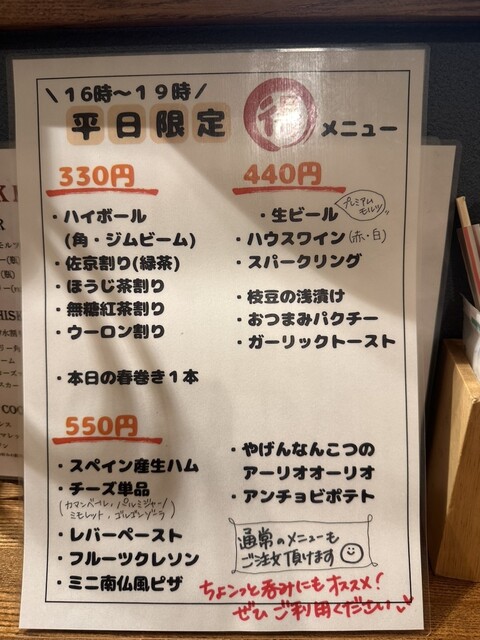 \16時～19時/
平日限定 得 メニュー
330円
・ハイボール
(角・ジムビーム)
・佐京割り(緑茶)
・ほうじ茶割り
・無糖紅茶割り
・ウーロン割り
・本日の春巻き1本
440円
・生ビール
プレミアム
モルツ
・ハウスワイン(赤・白)
・スパークリング
・枝豆の浅漬け
・おつまみパクチー
・ガーリックトースト
550円
・スペイン産生ハム
・チーズ単品
(カマンベール、パルミジャーノ
ミモレット、ゴルゴンゾーラ)
・レバーペースト
・フルーツクレソン
・ミニ南仏風ピザ
・やげんなんこつの
アーリオオーリオ
・アンチョビポテト
通常のメニューも
ご注文頂けます
ちょこっと呑みにもオススメ!
ぜひご利用ください